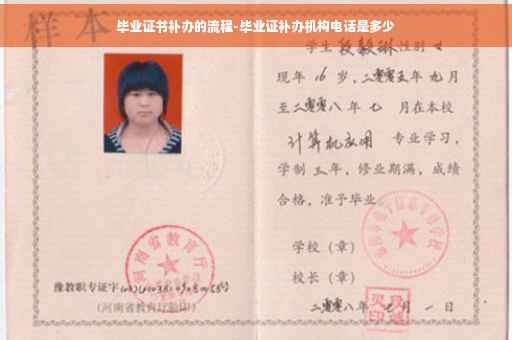 毕业证书补办的流程-毕业证补办机构电话是多少
样本
学生 段毅琳 性别 女
现年 16 岁，二零零五年 九月
至二零零八年 七 月在本校
计算机应用 专业学习，
学制 三 年，修业期满，成绩
合格，准予毕业
学校（章）
校长（章）
二零零八年 七 月 一 日
河南省教育厅
豫教职专证字
（河南省教育厅验印）